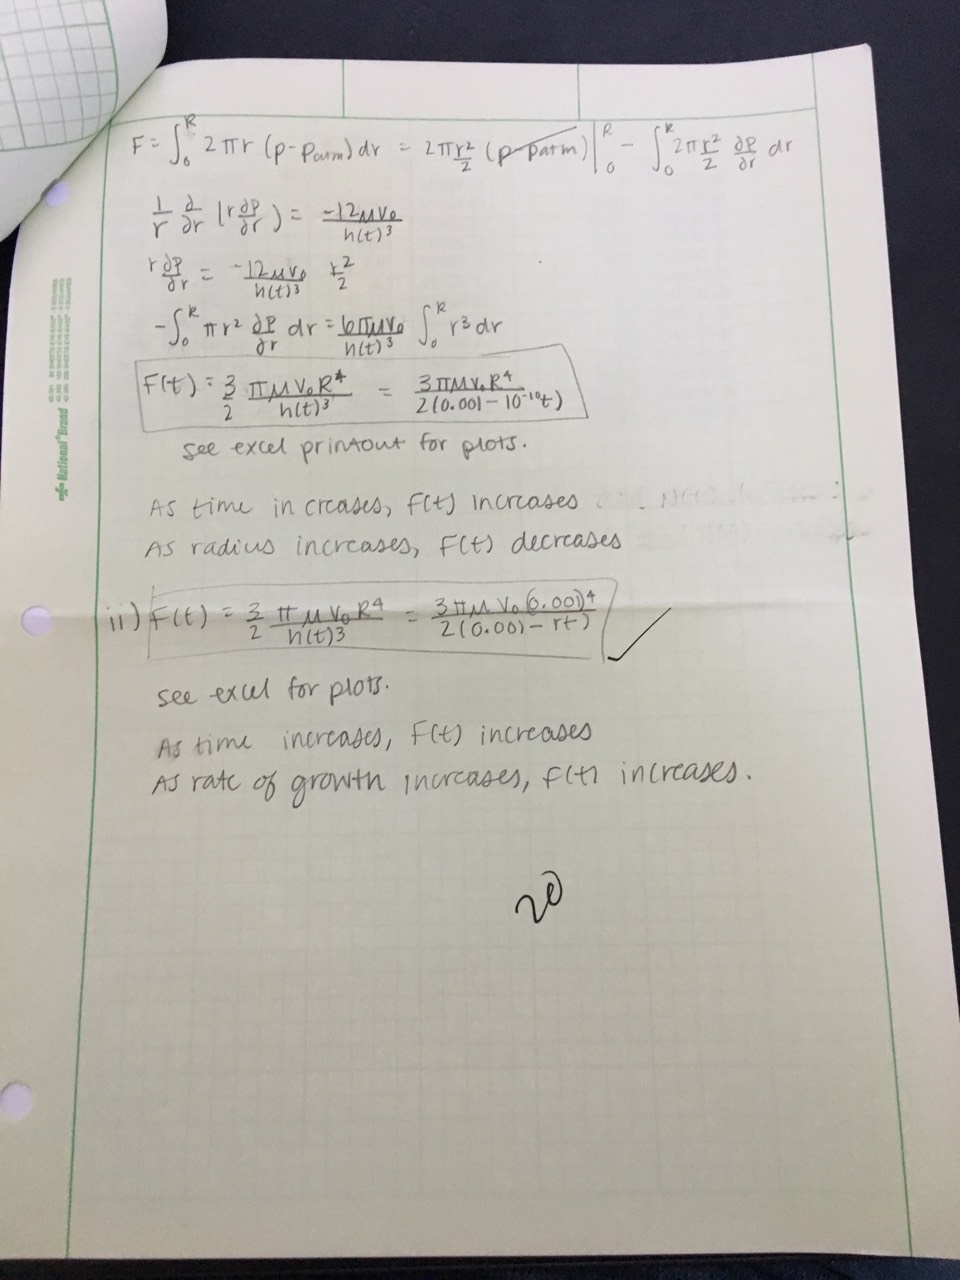 F = ∫₀ᴿ 2πr (p-Patm) dr = 2π r²/2 (p-Patm) |₀ᴿ - ∫₀ᴿ 2π r²/2 ∂P/∂r dr
1/r ∂/∂r (r ∂P/∂r) = -12μV₀/h(t)³
r ∂P/∂r = -12μV₀/h(t)³ r²/2
-∫₀ᴿ πr² ∂P/∂r dr = 6πμV₀/h(t)³ ∫₀ᴿ r³ dr
F(t) = 3/2 πμV₀R⁴/h(t)³ = 3πμV₀R⁴/2(0.001-10⁻¹⁰t)
see excel printout for plots.
As time in creases, F(t) increases
As radius increases, F(t) decreases
ii) F(t) = 3/2 πμV₀R⁴/h(t)³ = 3πμV₀(0.001)⁴/2(0.001-rt)
see excel for plots.
As time increases, F(t) increases
As rate of growth increases, F(t) increases.
20
Rational Brand